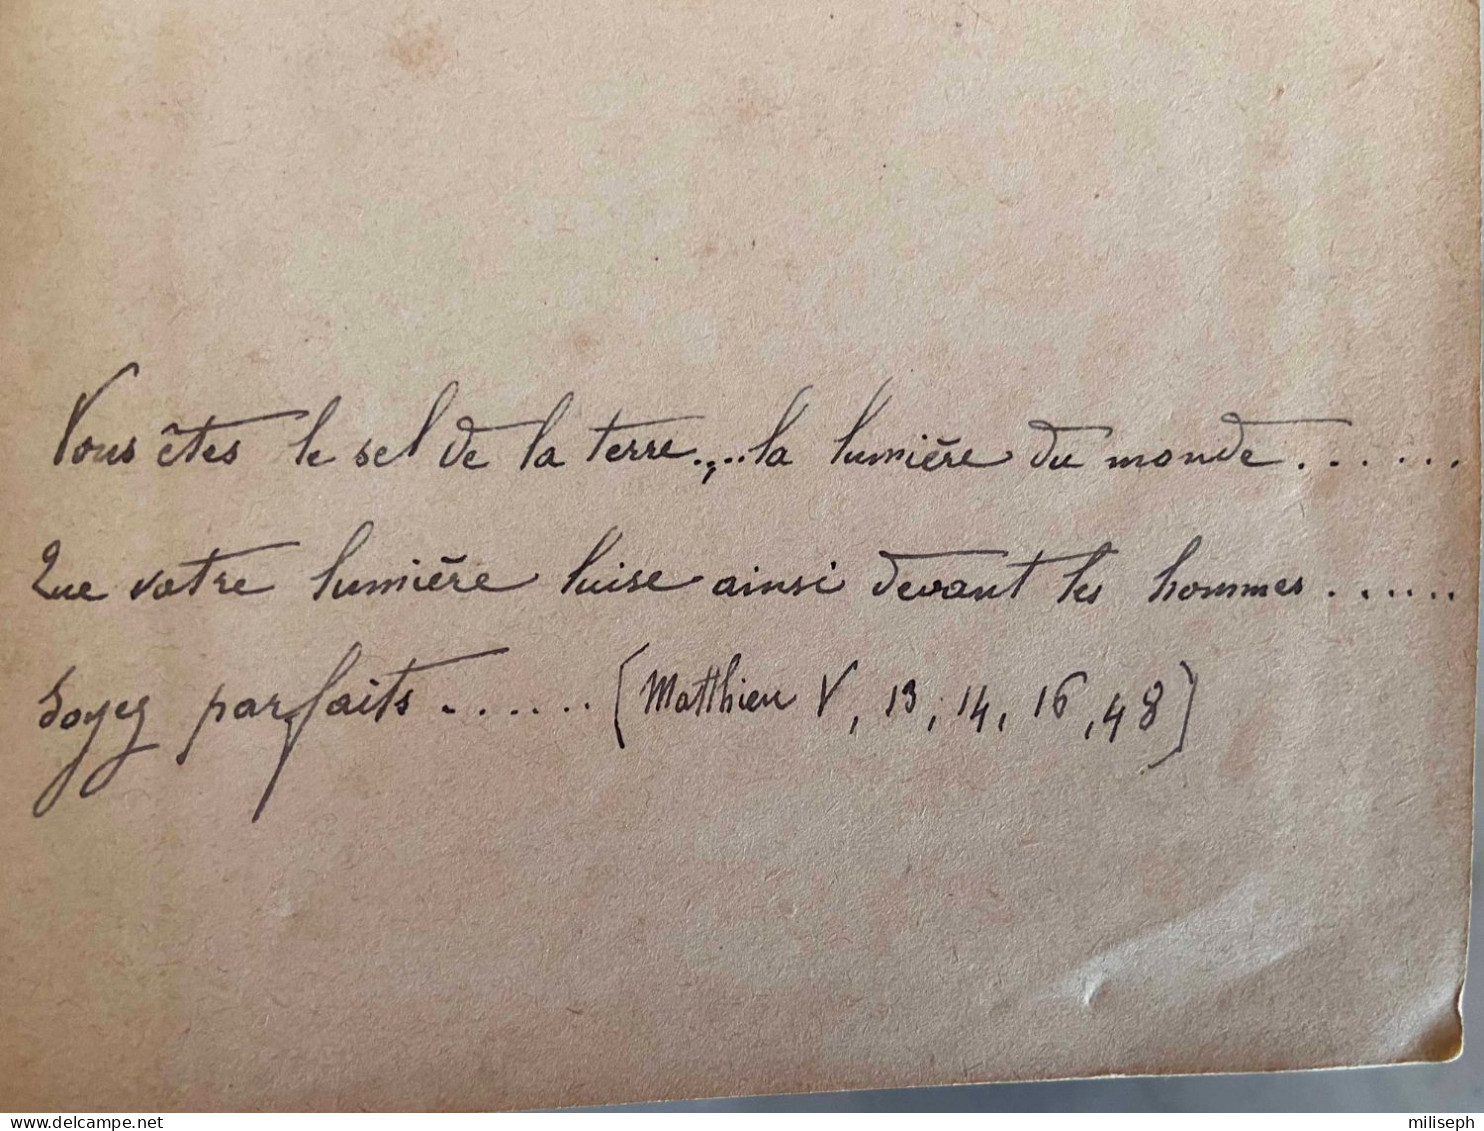 Vous êtes le sel de la terre..,..la lumière du monde.......
Que votre lumière luise ainsi devant les hommes......
Soyez parfaits....... (Matthieu V, 13, 14, 16, 48)
www.delcampe.net
miliseph